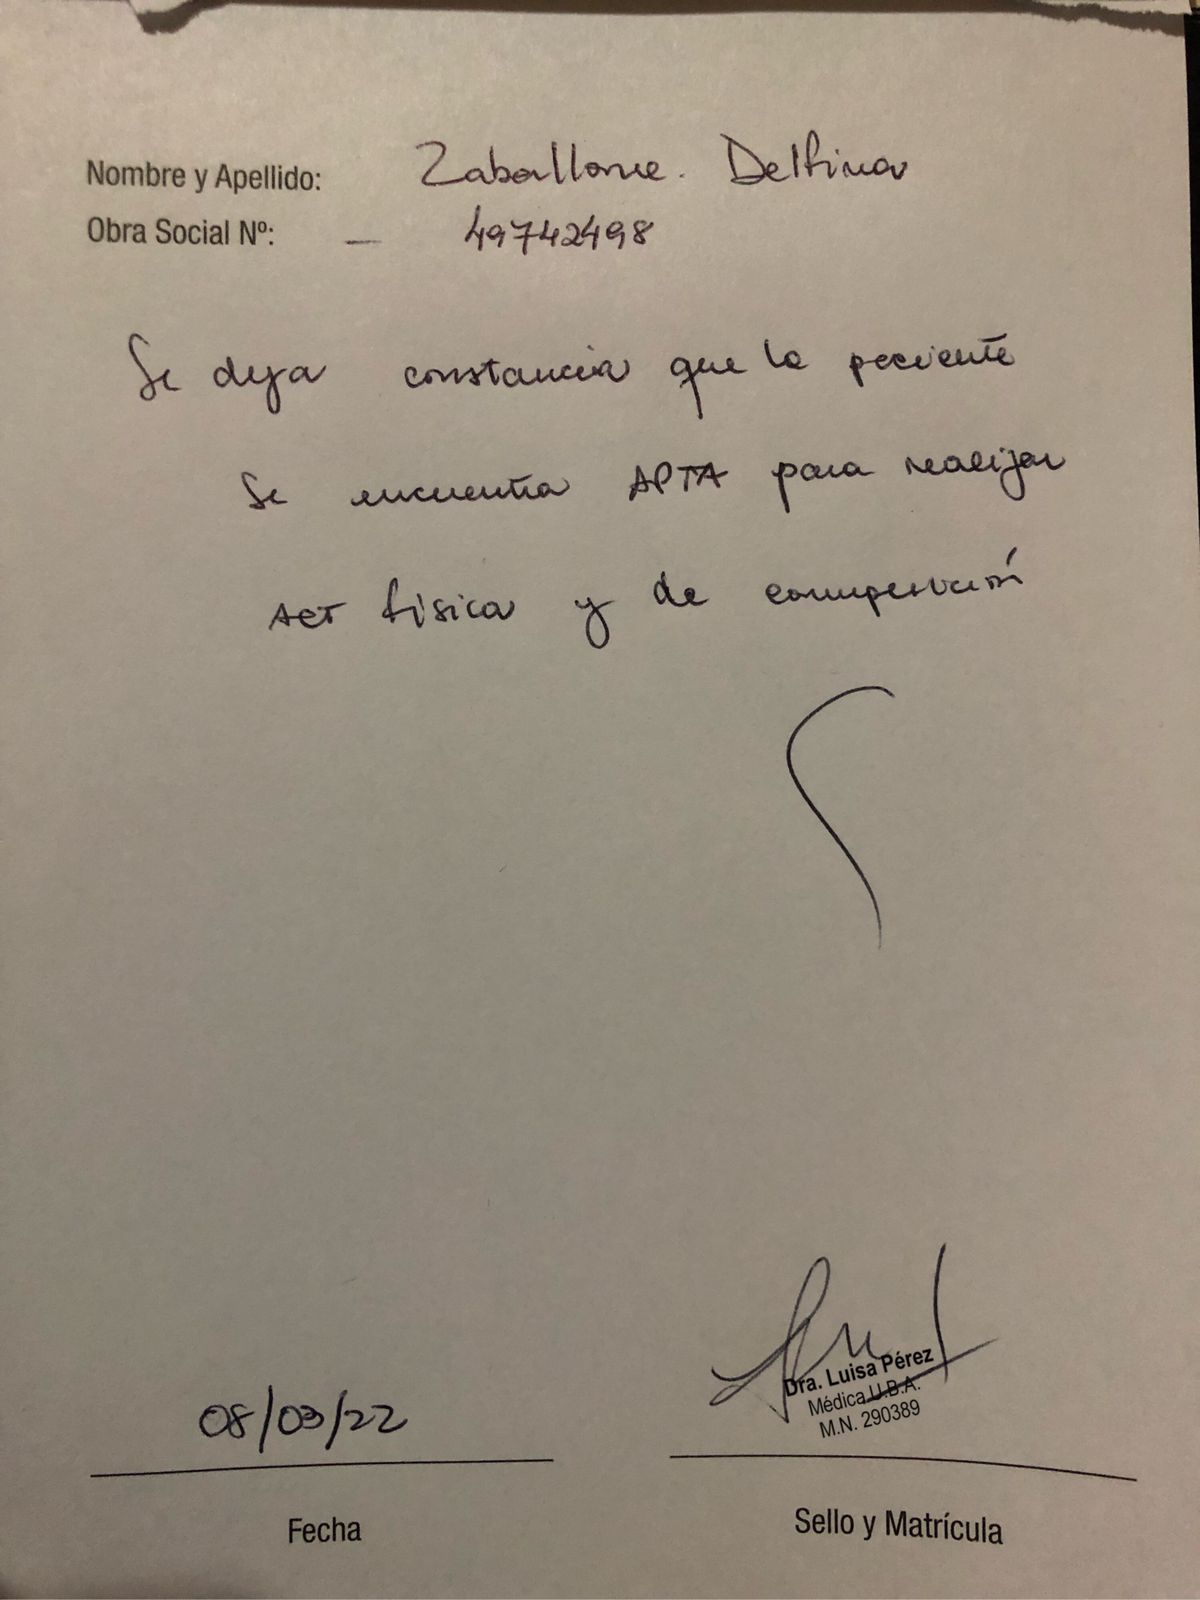 Nombre y Apellido: Zaballone. Delfina
Obra Social Nº: — 49742498
Se deja constancia que la paciente
se encuentra APTA para realizar
ACT física y de competición
08/03/22
Dra. Luisa Pérez
Médica U.B.A.
M.N. 290389
Fecha
Sello y Matrícula